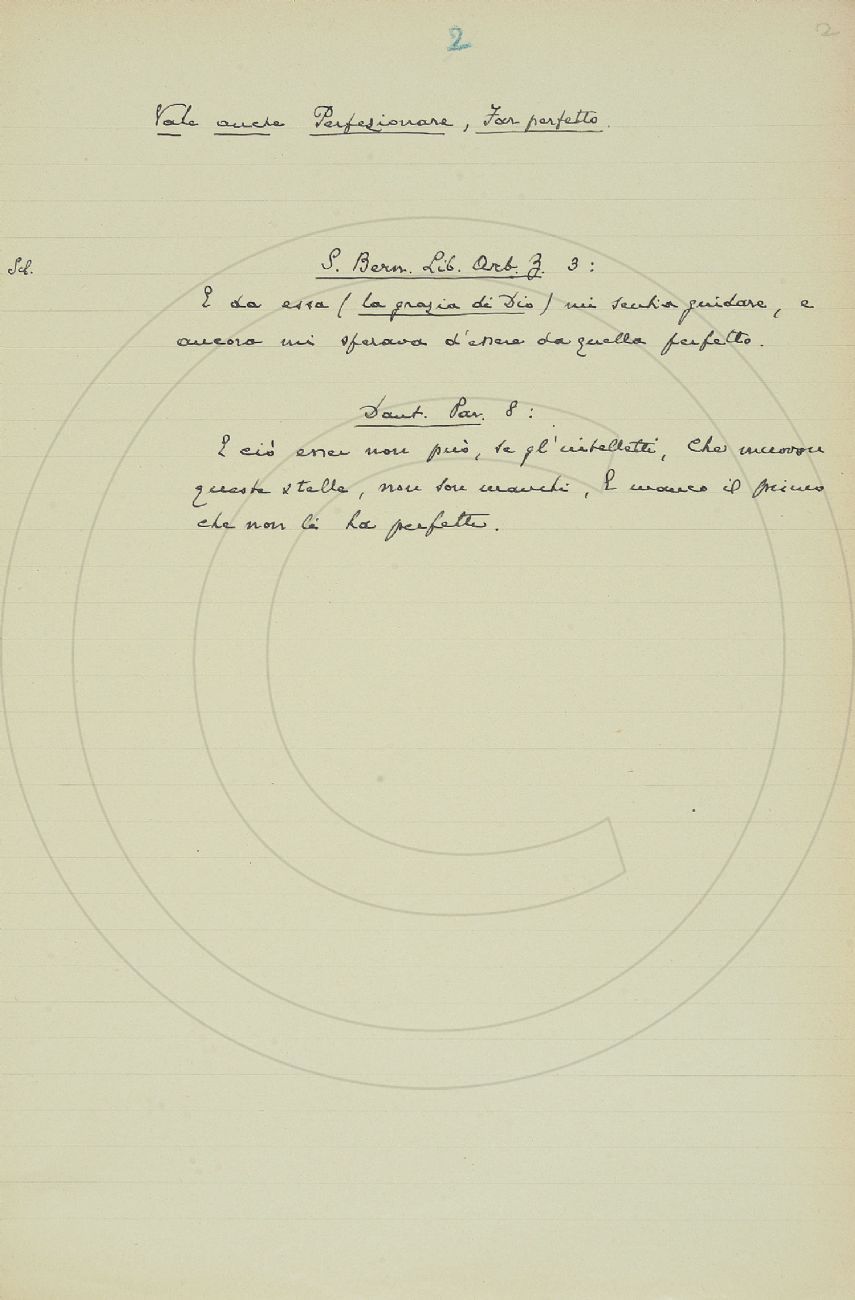 2
2
Vale anche Perfezionare, Far perfetto.
Sd.
S. Bern. Lib. Arb. Z. 3:
E da essa (la grazia di Dio) mi sentia guidare, e
ancora mi sperava d'essere da quella perfetto.
Dant. Par. 8:
E ciò esser non può, se gl'intelletti, Che muovon
queste stelle, non son manchi, E manco il primo
che non li ha perfetti.